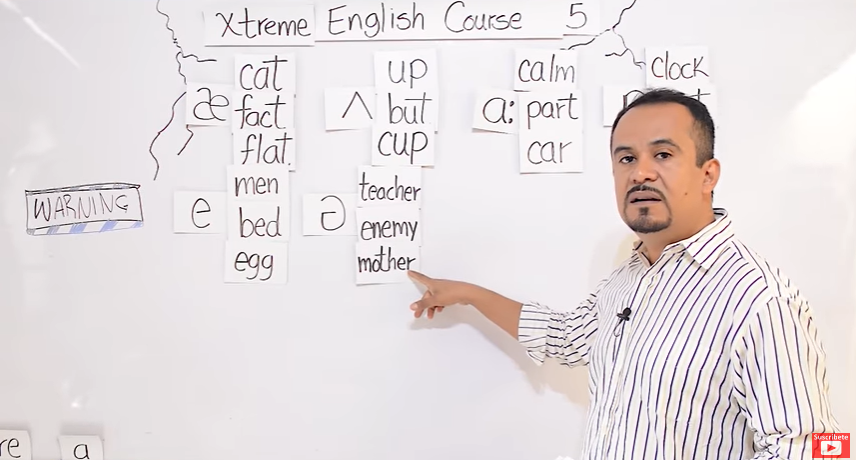 Xtreme English Course 5
cat
up
calm
clock
æ
fact
ʌ
but
ɑ:
part
flat.
cup
car
WARNING
men
teacher
e
bed
ə
enemy
egg
mother
re
a
Suscribete